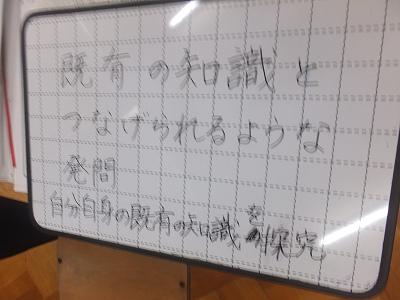 既有の知識と
つなげられるような
発問
自分自身の既有の知識を探究